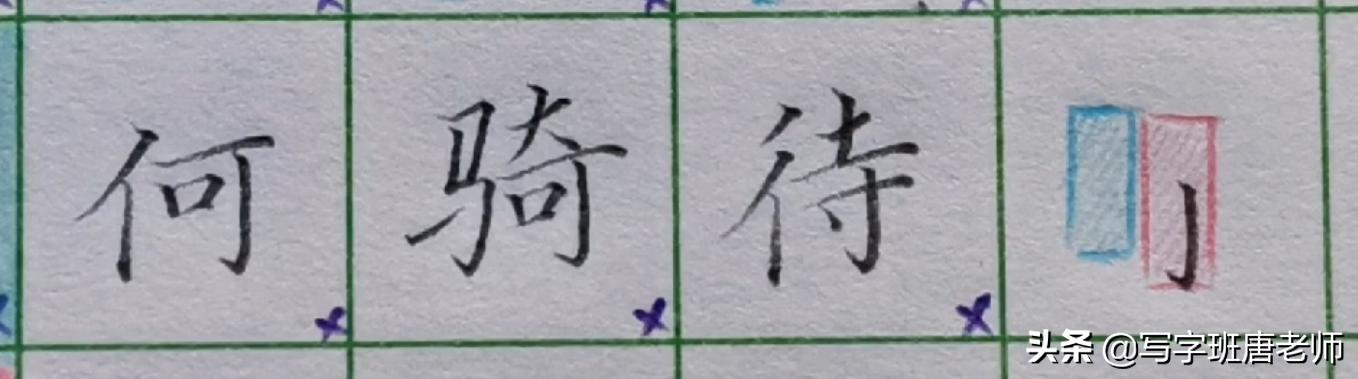 何骑待亅
头条 @写字班唐老师